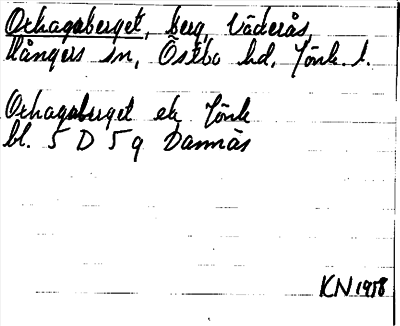 Oxhagaberget, berg, Väderås,
Kångers sn, Östbo hd, Jönk. l.
Oxhagaberget ek Jönk
bl. 5 D 5 g Dannäs
KN 1958